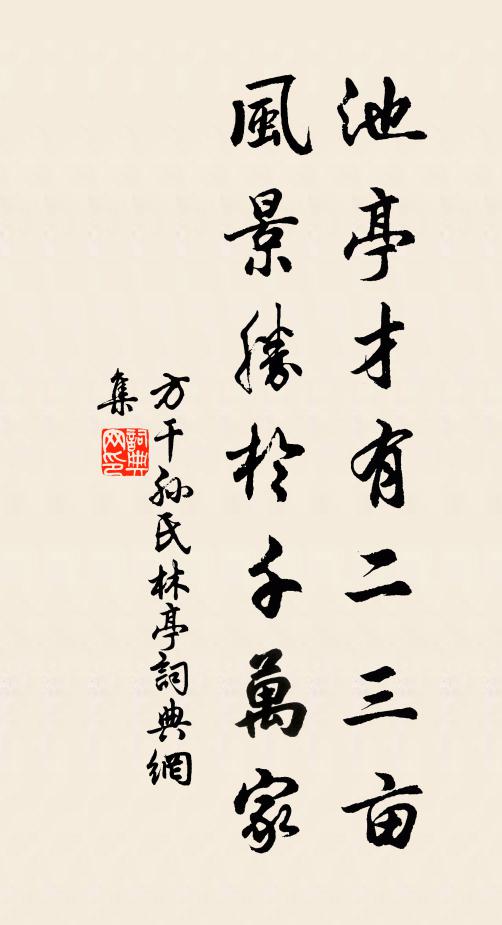 池亭才有二三亩
風景勝於千萬家
方干孫氏林亭詞典網
集
詞典
网印